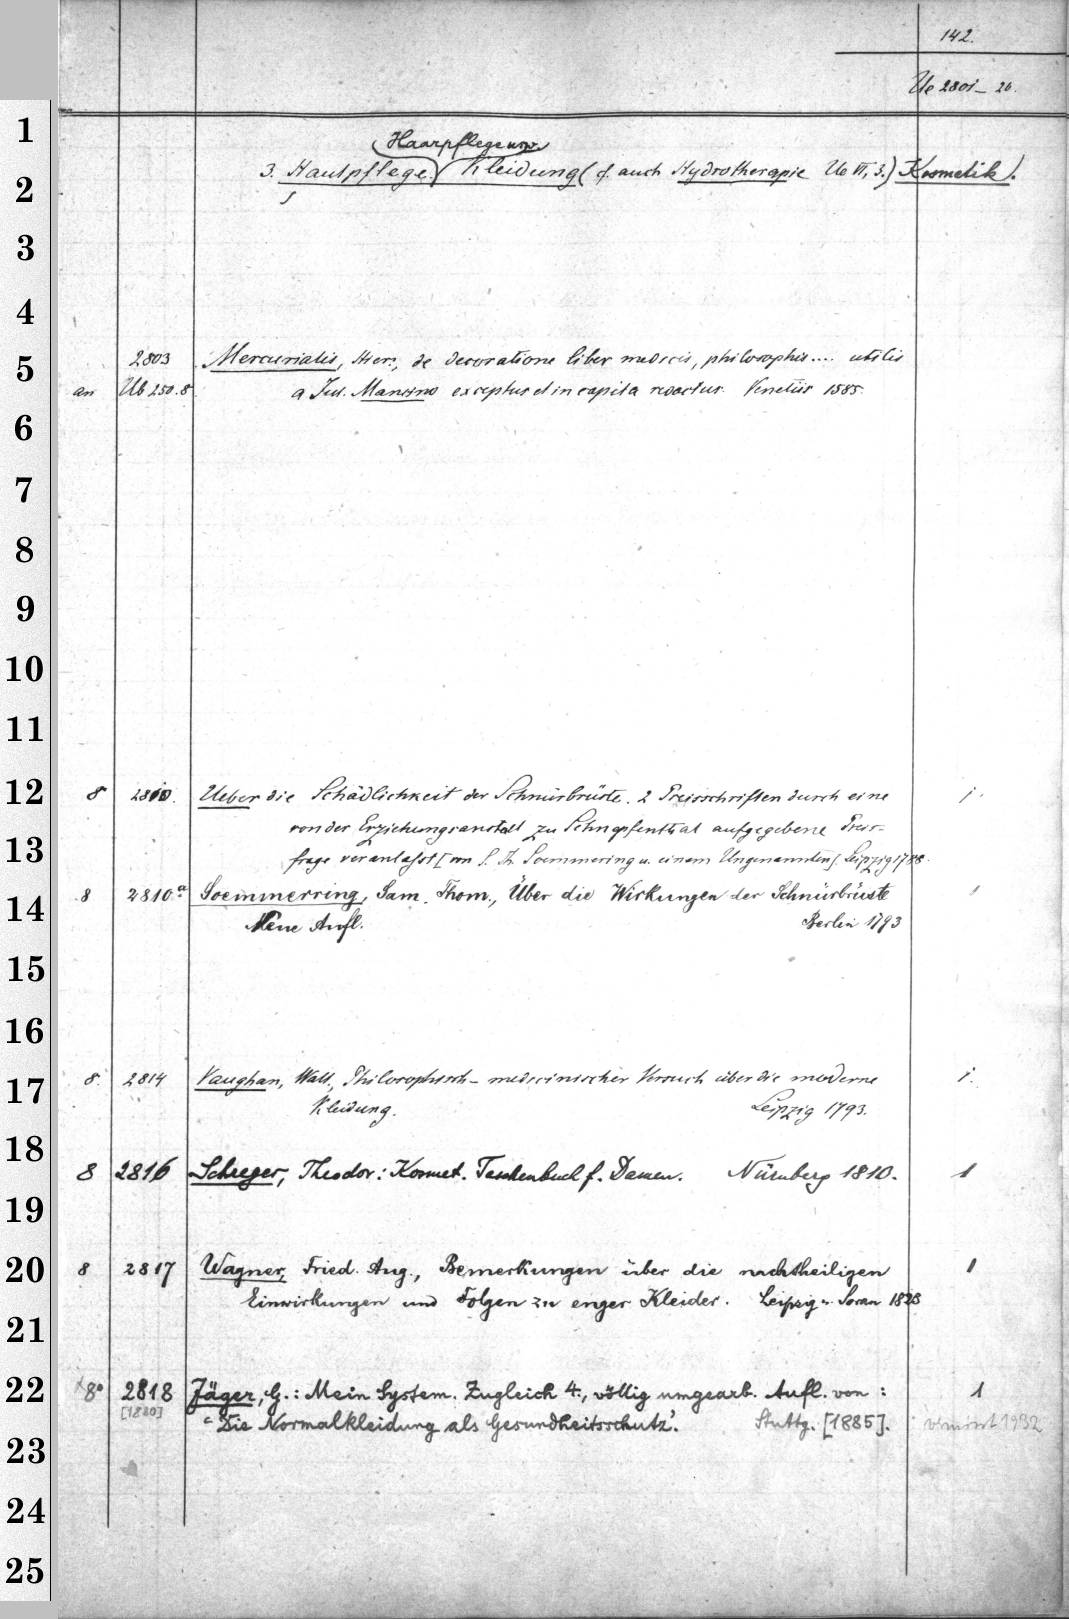 142.
Ue 2801-26.
Haarpflege usw.
3. Hautpflege. Kleidung (cf. auch Hydrotherapie Ue VI, 3.) Kosmetik).
1
2
3
4
5 2803 Mercurialis, Hier., de decoratione liber medicis, philosophis.... utilis
an Ub 250.8 a Jul. Mancino exceptus et in capita redactus. Venetiis 1585.
6
7
8
9
10
11
12 8 2810. Ueber die Schädlichkeit der Schnürbrüste. 2 Preisschriften durch eine 1.
von der Erziehungsanstalt zu Schnepfenthal aufgegebene Preis-
13 frage veranlasst [von S. Th. Soemmering u. einem Ungenannten]. Leipzig 1788.
14 8 2810.a Soemmerring, Sam. Thom., Über die Wirkungen der Schnürbrüste 1
Neue Aufl. Berlin 1793
15
16
17 8. 2814 Vaughan, Walt., Philosophisch-medicinischer Versuch über die moderne 1.
Kleidung. Leipzig 1793.
18 8 2816 Schreger, Theodor: Kosmet. Taschenbuch f. Damen. Nürnberg 1810. 1
19
20 8 2817 Wagner, Fried. Aug., Bemerkungen über die nachtheiligen 1
Einwirkungen und Folgen zu enger Kleider. Leipzig u. Sorau 1828
21
22 8° 2818 Jäger, G.: Mein System. Zugleich 4., völlig umgearb. Aufl. von: 1
[1880] "Die Normalkleidung als Gesundheitsschutz". Stuttg. [1885]. vermisst 1932
23
24
25